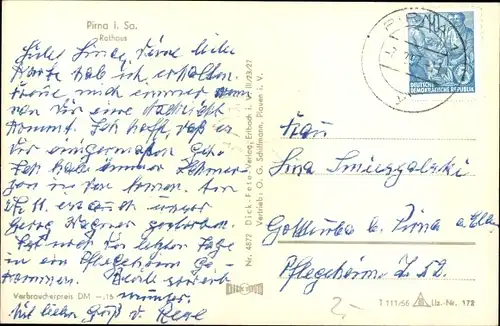 Pirna i. Sa.
Rathaus
Liebe Lina, Deine liebe
Karte hab ich erhalten.
Freue mich immer wenn
von Dir eine Nachricht
kommt. Ich hoffe daß es
Dir einigermaßen geht
Ich habe immer Schmer-
zen in den Armen. Am
ist auch unser
Georg Wagner gestorben.
Er war die letzten Tage
in ein Pflegeheim ge-
kommen. Bleib weiter
munter.
Mit lieben Gruß v.
Verbraucherpreis DM -.15
Nr. 4877 Dick-Foto-Verlag, Erlbach i. V. III/23/27
Vertrieb: O. G. Schiffmann, Plauen i. V.
DICK FOTO
PIRNA
DEUTSCHE
DEMOKRATISCHE REPUBLIK
Frau
Lina Smieszgalski
Gottleuba b. Pirna a. Elbe
Pflegeheim Z.
2,-
T 111/56 Liz.-Nr. 172